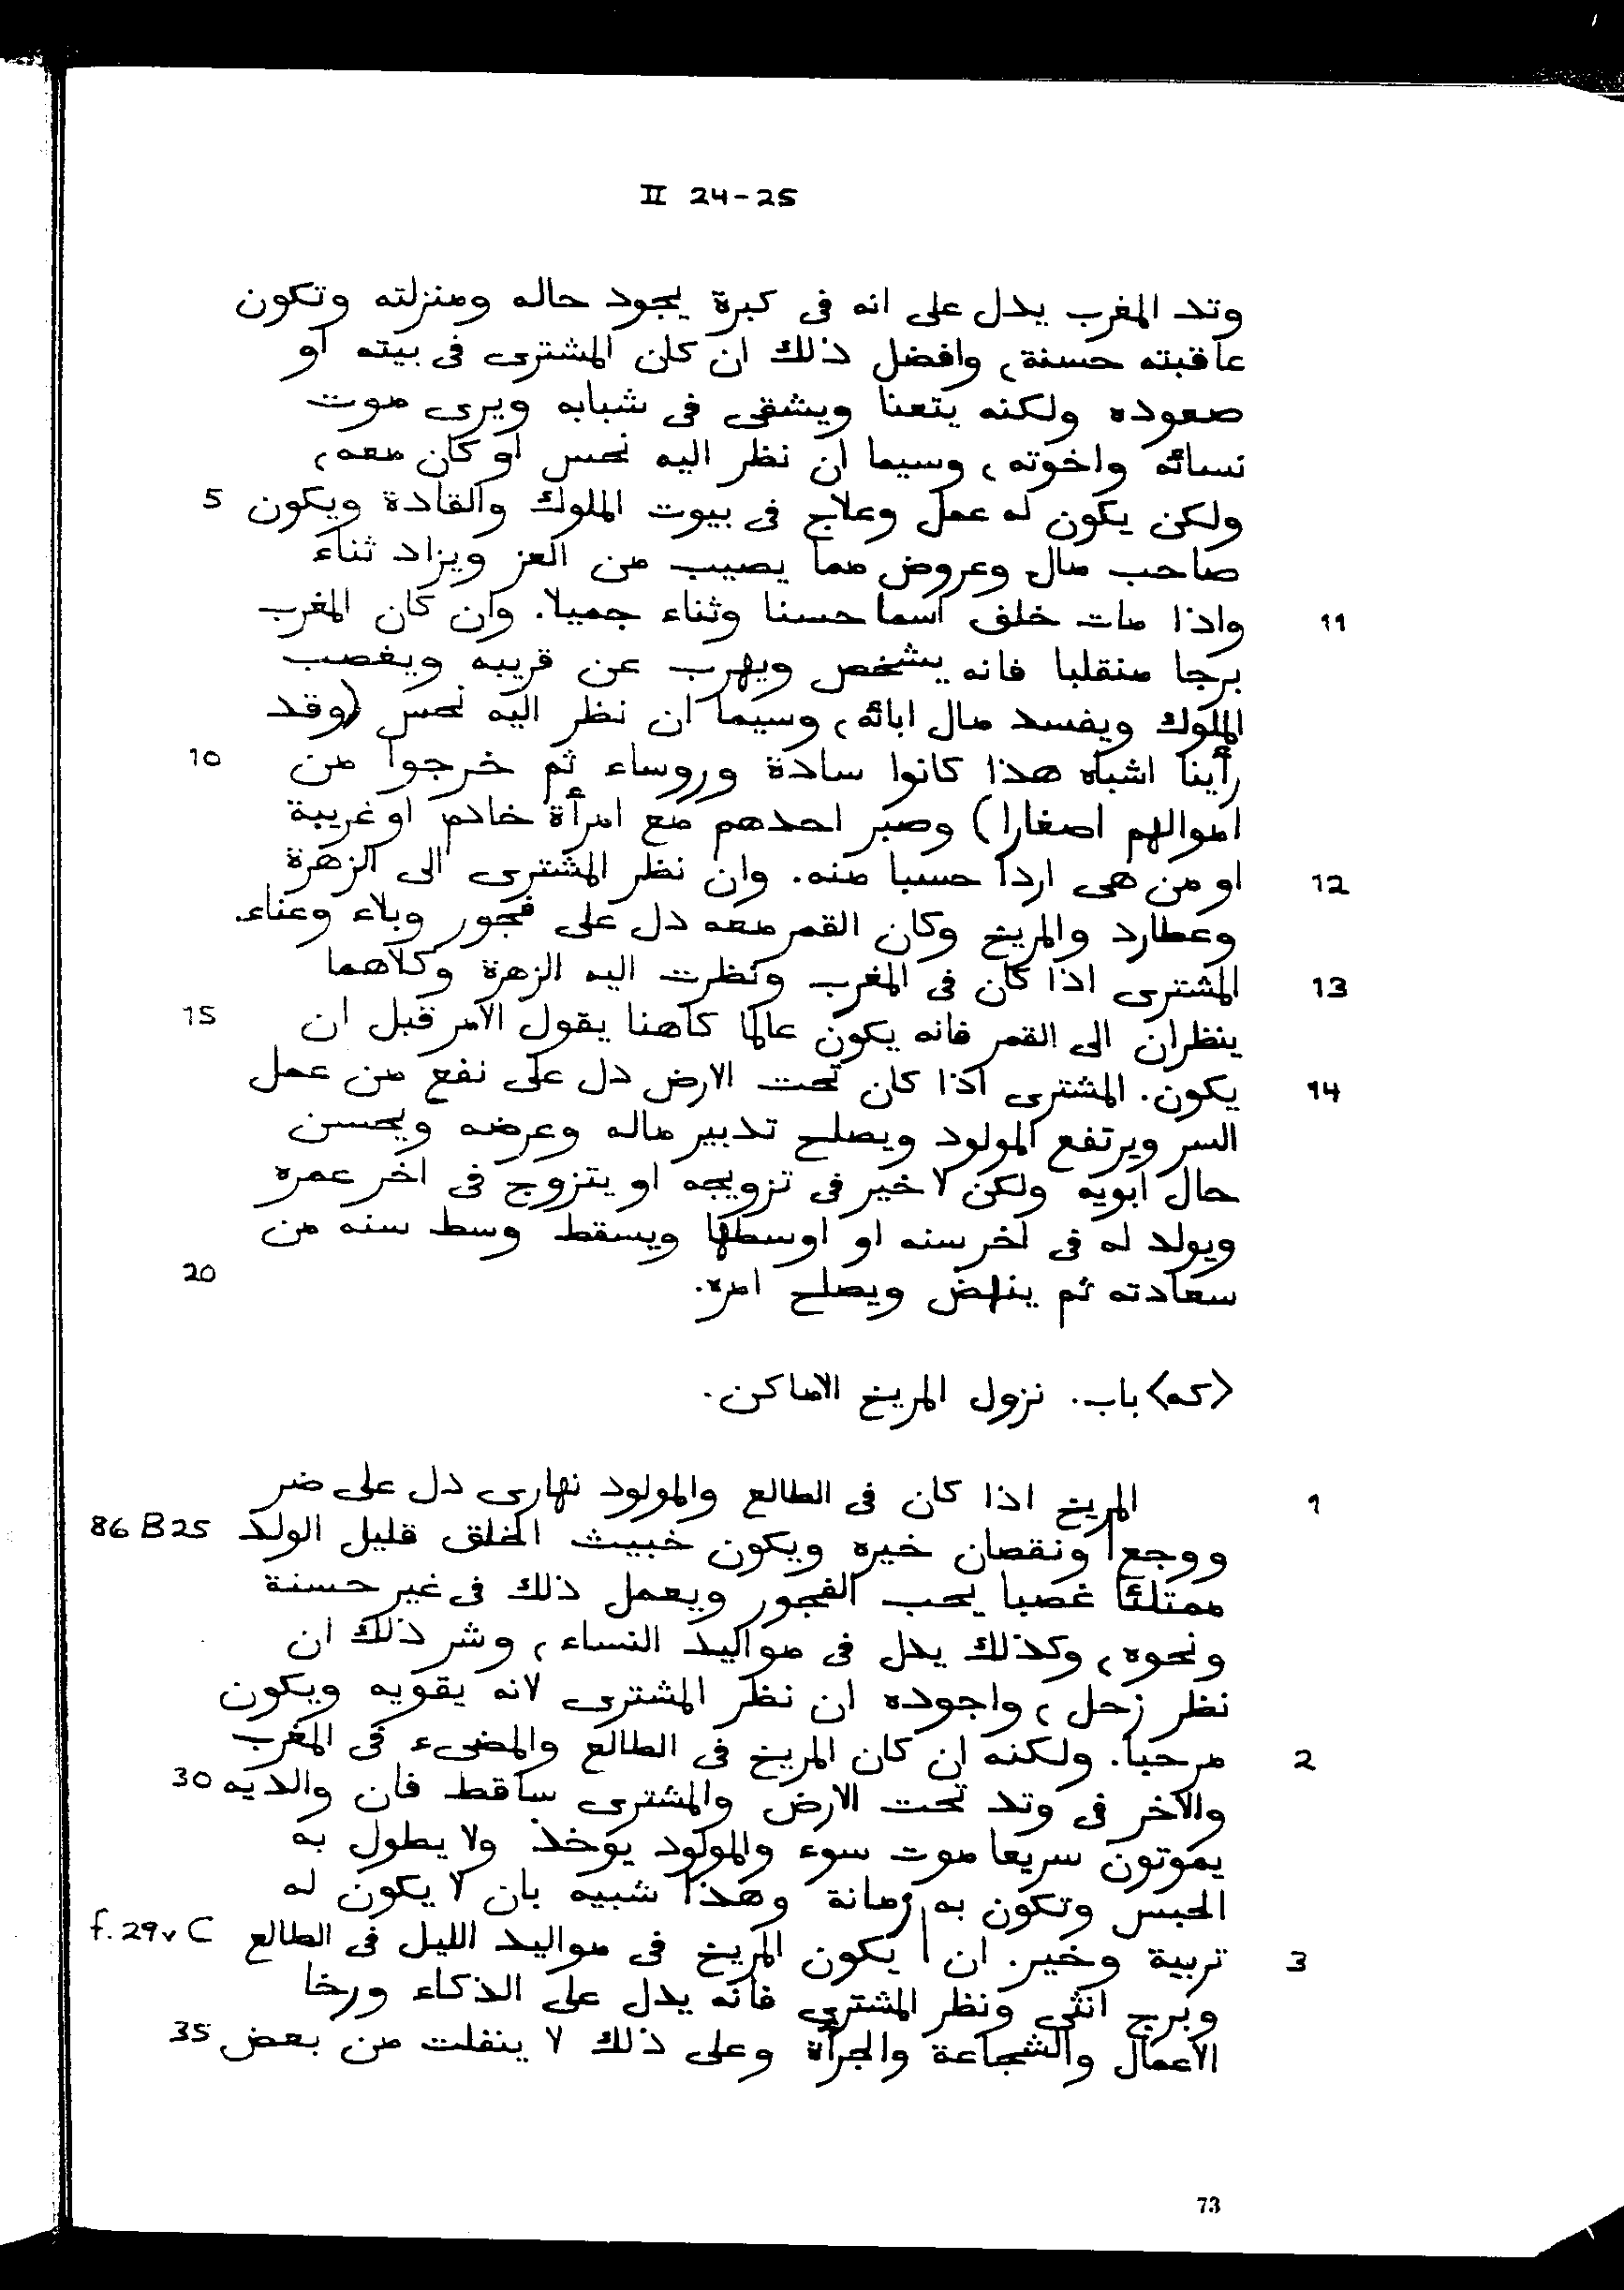 II 24-25
وتد المغرب يدل على انه فى كبرة يجود حاله ومنزلته وتكون
عاقبته حسنة، وافضل ذلك ان كان المشترى فى بيته او
صعوده ولكنه يتعنا ويشقى فى شبابه ويرى موت
نسائه واخوته، وسيما ان نظر اليه نحس او كان معه،
ولكن يكون له عمل وعلاج فى بيوت الملوك والقادة ويكون 5
صاحب مال وعروض مما يصيب من العز ويزاد ثناء
11 واذا مات خلف اسما حسنا وثناء جميلا. وان كان المغرب
برجا منقلبا فانه يشخص ويهرب عن قريبه ويغصب
الملوك ويفسد مال ابائه، وسيما ان نظر اليه نحس (وقد
رأينا اشباه هذا كانوا سادة وروساء ثم خرجوا من 10
اموالهم اصغارا) وصبر احدهم مع امرأة خادم او غريبة
12 او من هى اردأ حسبا منه. وان نظر المشترى الى الزهرة
وعطارد والمريخ وكان القمر معه دل على فجور وبلاء وعناء.
13 المشترى اذا كان فى المغرب ونظرت اليه الزهرة وكلاهما
ينظران الى القمر فانه يكون عالما كاهنا يقول الامر قبل ان 15
14 يكون. المشترى اذا كان تحت الارض دل على نفع من عمل
السر ويرتفع المولود ويصلح تدبير ماله وعرضه ويحسن
حال ابويه ولكن لا خير فى تزويجه او يتزوج فى اخر عمره
ويولد له فى اخر سنه او اوسطها ويسقط وسط سنه من
سعادته ثم ينهض ويصلح امره. 20
<كه> باب. نزول المريخ الاماكن.
1 المريخ اذا كان فى الطالع والمولود نهارى دل على ضر
ووجع| ونقصان خيره ويكون خبيث الخلق قليل الولد 86 B25
ممتلئا غصبا يحب الفجور ويعمل ذلك فى غير حسنة
ونحوه، وكذلك يدل فى مواليد النساء، وشر ذلك ان
نظر زحل، واجوده ان نظر المشترى لانه يقويه ويكون
2 مرحبا. ولكنه ان كان المريخ فى الطالع والمضىء فى المغرب
والآخر فى وتد تحت الارض والمشترى ساقط فان والديه 30
يموتون سريعا موت سوء والمولود يوخذ ولا يطول به
الحبس وتكون به زمانة وهذا شبيه بان لا يكون له
3 تربية وخير. ان | يكون المريخ فى مواليد الليل فى الطالع f. 29v C
وبرج انثى ونظر المشترى فانه يدل على الذكاء ورخا
الاعمال والشجاعة والجرأة وعلى ذلك لا ينفلت من بعض 35
73